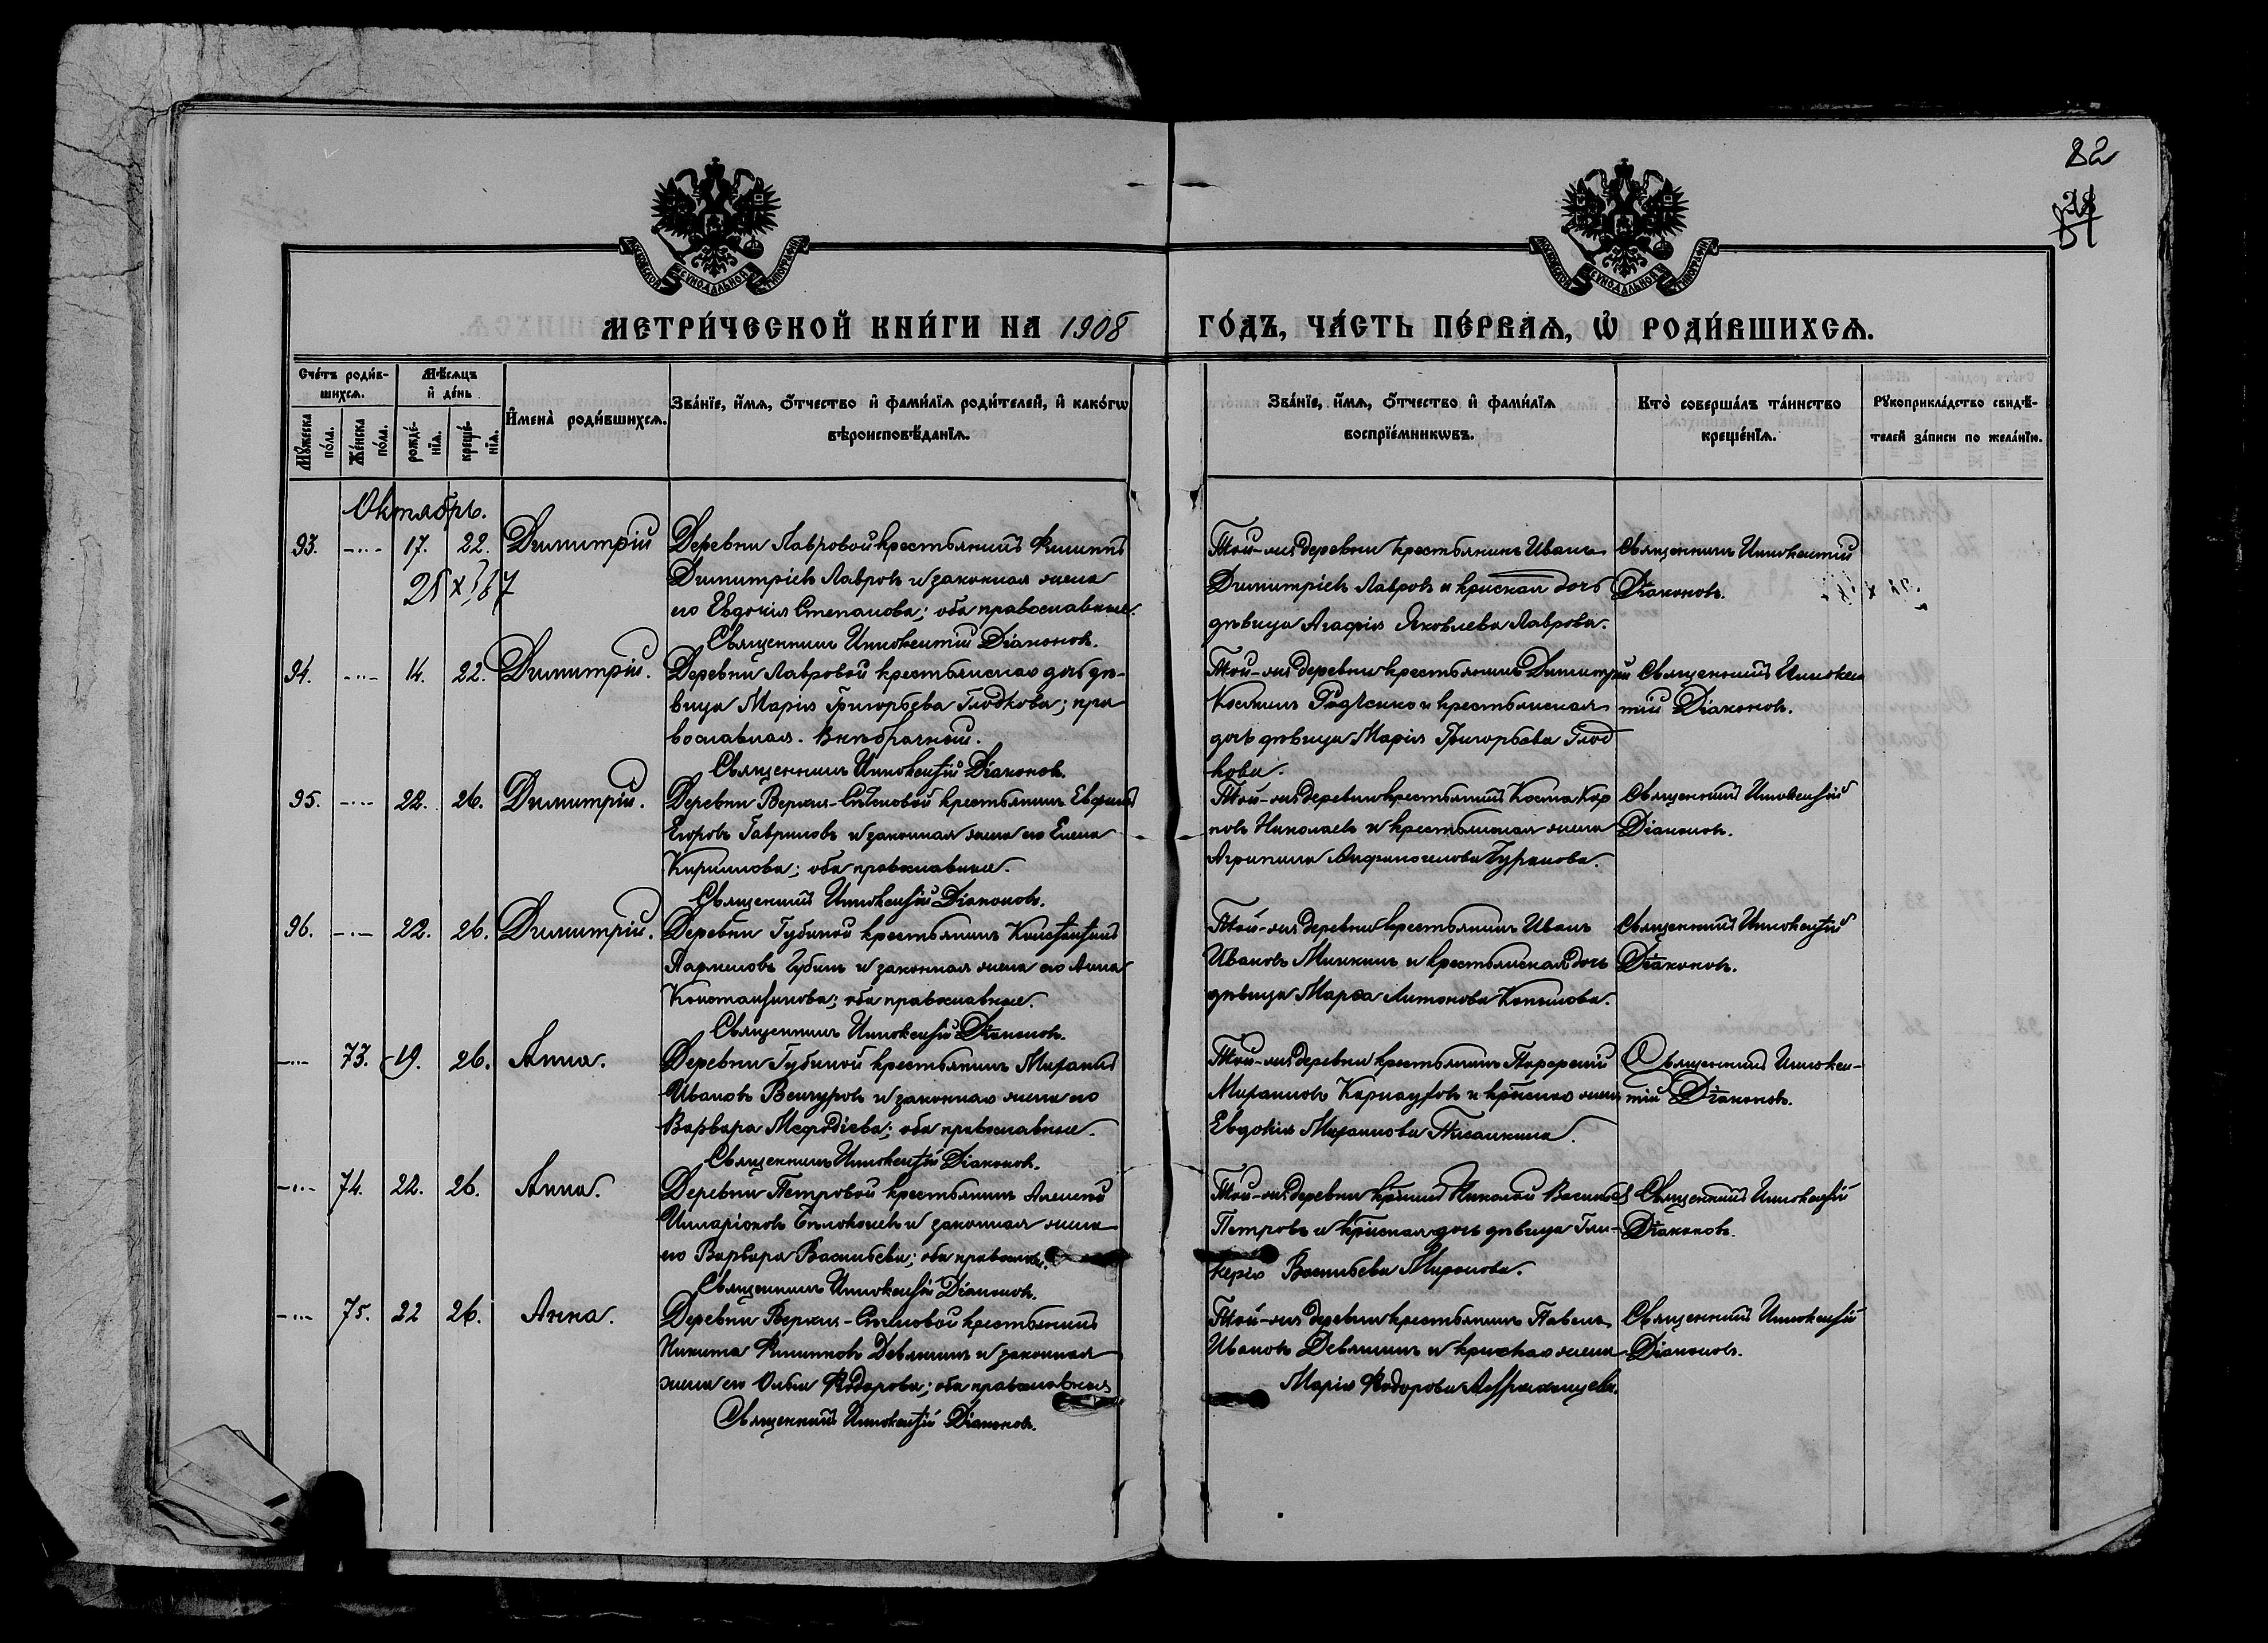 82
МЕТРИ́ЧЕСКОЙ КНИ́ГИ НА 1908 ГО́ДЪ, ЧА́СТЬ ПЕ́РВАѦ, Ѡ РОДИ́ВШИХСѦ.
Сче́тъ роди́в-
шихсѧ.
Мꙋ́жеска по́ла.
Же́нска по́ла.
Мѣ́сѧцъ
и҆ де́нь
рожде́-
нїѧ.
креще́-
нїѧ.
И҆мена̀ роди́вшихсѧ.
Зва́нїе, и҆́мѧ, ѻ҆́тчество и҆ фами́лїѧ роди́телей, и҆ како́гѡ
вѣроисповѣ́данїѧ.
Зва́нїе, и҆́мѧ, ѻ҆́тчество и҆ фами́лїѧ
воспрїе́мникѡвъ.
Кто̀ соверша́лъ та́инство
креще́нїѧ.
Рꙋкоприкла́дство свидѣ́-
телей за́писи по жела́нїю.
Октябрь.
93. 17. 22. Димитрій
Деревни Лавровой крестьянинъ Филиппъ
Димитріевъ Лавровъ и законная жена
его Евдокія Степанова; оба православные.
Священникъ Иннокентій Діаконовъ.
Той-же деревни крестьянинъ Иванъ
Димитріевъ Лавровъ и крнская дочь
дѣвица Агафія Яковлева Лаврова.
Священникъ Иннокентій
Діаконовъ.
94. 14. 22. Димитрій.
Деревни Лавровой крестьянская дочь дѣ-
вица Марія Григорьева Глодкова; пра
вославная. Внѣбрачный.
Священникъ Иннокентій Діаконовъ.
Той-же деревни крестьянинъ Димитрій
Косминъ и крестьянская
дочь дѣвица Марія Григорьева Глод
кова.
Священникъ Иннокен
тій Діаконовъ.
95. 22. 26. Димитрій.
Деревни Верхне- крестьянинъ
Егоровъ Гавриловъ и законная жена его Елена
Кириллова; оба православные.
Священникъ Иннокентій Діаконовъ.
Той-же деревни крестьянинъ Кар
повъ Николаевъ и крестьянская жена
Агрипина Чуранова.
Священникъ Иннокентій
Діаконовъ.
96. 22. 26. Димитрій.
Деревни Губиной крестьянинъ Константинъ
Губинъ и законная жена его Анна
Константинова; оба православные.
Священникъ Иннокентій Діаконовъ.
Той-же деревни крестьянинъ Иванъ
Ивановъ Минкинъ и крестьянская дочь
дѣвица Марѳа Антонова Копылова.
Священникъ Иннокентій
Діаконовъ.
73. 19. 26. Анна.
Деревни Губиной крестьянинъ Михаилъ
Ивановъ Венчуровъ и законная жена его
Варвара Меѳодіева; оба православные.
Священникъ Иннокентій Діаконовъ.
Той-же деревни крестьянинъ Порфирій
Михаиловъ Карнауховъ и крнская жена
Евдокія Михаилова
Священникъ Иннокен-
тій Діаконовъ.
74. 22. 26. Анна.
Деревни Петровой крестьянинъ Алексѣй
Илларіоновъ и законная жена
его Варвара Васильева; оба православн.
Священникъ Иннокентій Діаконовъ.
Той-же деревни Николай Васильевъ
Петровъ и крнская дочь дѣвица Гли-
керія Васильева Миронова.
Священникъ Иннокентій
Діаконовъ.
75. 22 26. Анна.
Деревни Верхне- крестьянинъ
Никита Филипповъ Девлишинъ и законная
жена его Ольга Ѳодорова; оба православныя
Священникъ Иннокентій Діаконовъ.
Той-же деревни крестьянинъ Павелъ
Ивановъ Девлишинъ и крнская жена
Марія Ѳодорова
Священникъ Иннокентій
Діаконовъ.